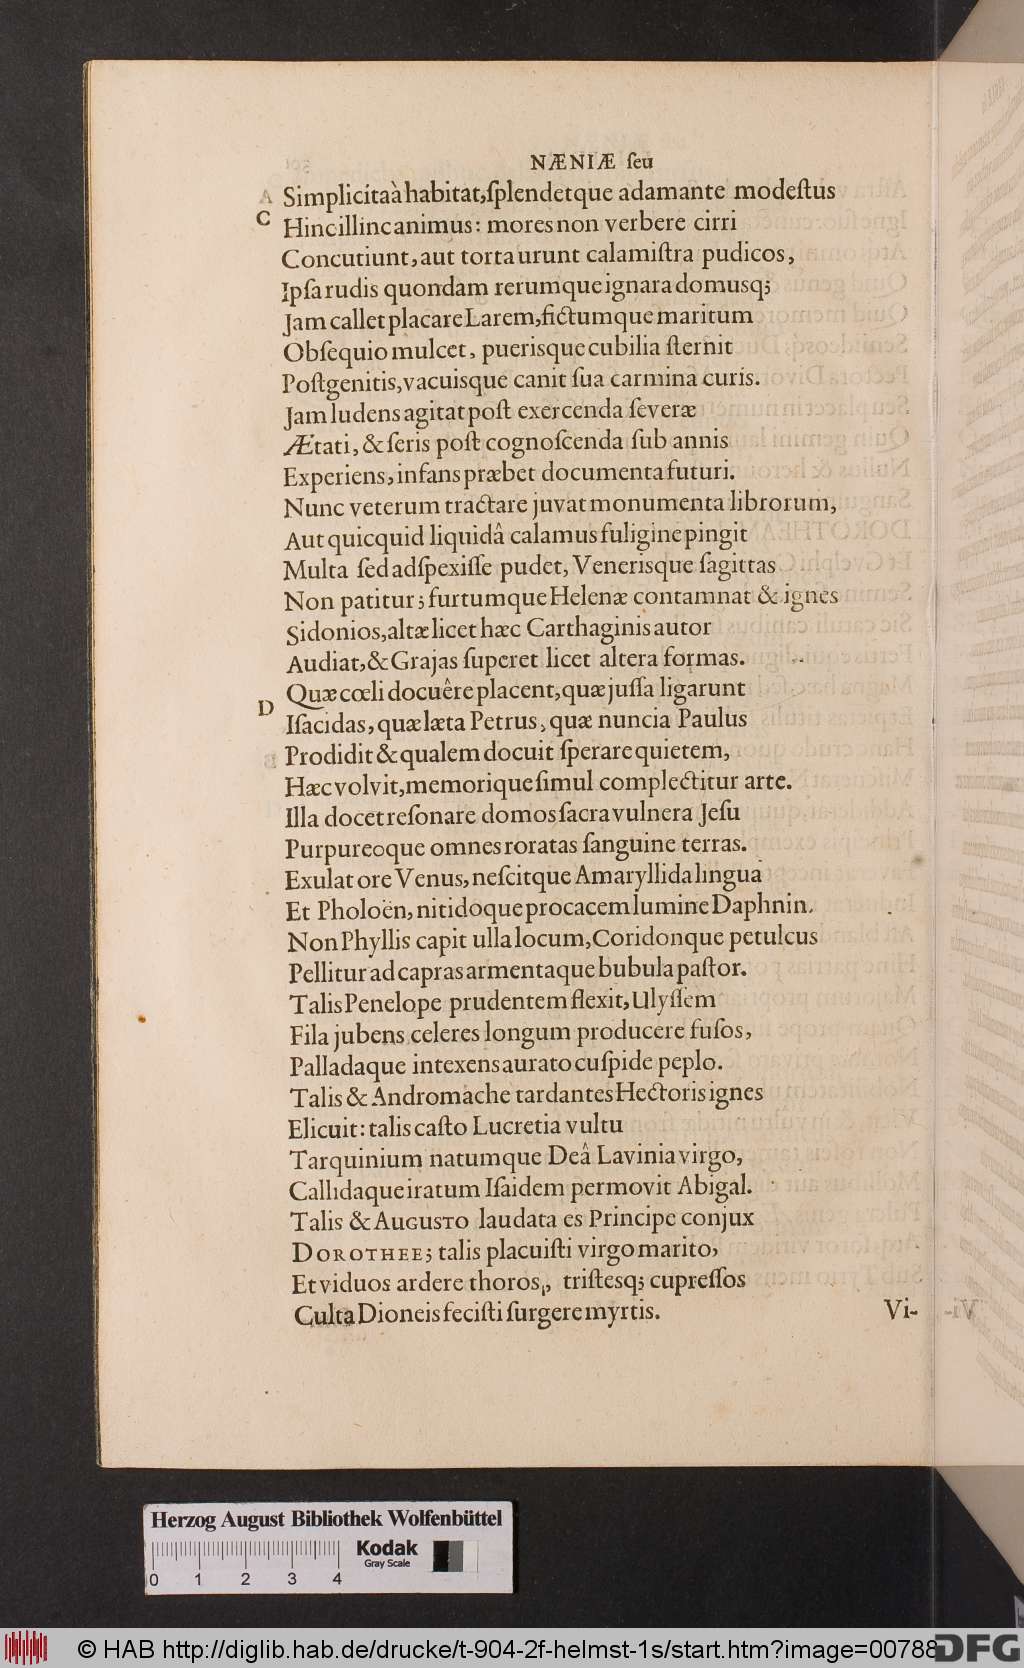 NÆNIÆ ſeu
Simplicitaà habitat, ſplendetque adamante modeſtus
C
Hinc illinc animus: mores non verbere cirri
Concutiunt, aut torta urunt calamiſtra pudicos,
Ipſa rudis quondam rerumque ignara domusq;
Jam callet placare Larem, fictumque maritum
Obſequio mulcet, puerisque cubilia ſternit
Poſtgenitis, vacuisque canit ſua carmina curis.
Jam ludens agitat poſt exercenda ſeveræ
Ætati, & ſeris poſt cognoſcenda ſub annis
Experiens, infans præbet documenta futuri.
Nunc veterum tractare juvat monumenta librorum,
Aut quicquid liquidâ calamus fuligine pingit
Multa ſed adſpexiſſe pudet, Venerisque ſagittas
Non patitur; furtumque Helenæ contamnat & ignes
Sidonios, altæ licet hæc Carthaginis autor
Audiat, & Grajas ſuperet licet altera formas.
Quæ cœli docuêre placent, quæ juſſa ligarunt
D
Iſacidas, quæ læta Petrus, quæ nuncia Paulus
Prodidit & qualem docuit ſperare quietem,
Hæc volvit, memorique ſimul complectitur arte.
Illa docet reſonare domos ſacra vulnera Jeſu
Purpureoque omnes roratas ſanguine terras.
Exulat ore Venus, neſcitque Amaryllida lingua
Et Pholoën, nitidoque procacem lumine Daphnin.
Non Phyllis capit ulla locum, Coridonque petulcus
Pellitur ad capras armentaque bubula paſtor.
Talis Penelope prudentem flexit, Ulyſſem
Fila jubens celeres longum producere fuſos,
Palladaque intexens aurato cuſpide peplo.
Talis & Andromache tardantes Hectoris ignes
Elicuit: talis caſto Lucretia vultu
Tarquinium natumque Deâ Lavinia virgo,
Callidaque iratum Iſaidem permovit Abigal.
Talis & AUGUSTO laudata es Principe conjux
DOROTHEE; talis placuiſti virgo marito,
Et viduos ardere thoros, triſtesq; cupreſſos
Culta Dioneis feciſti ſurgere myrtis.
Vi-
Herzog August Bibliothek Wolfenbüttel
Kodak
Gray Scale
0 1 2 3 4
© HAB http://diglib.hab.de/drucke/t-904-2f-helmst-1s/start.htm?image=00788
DFG